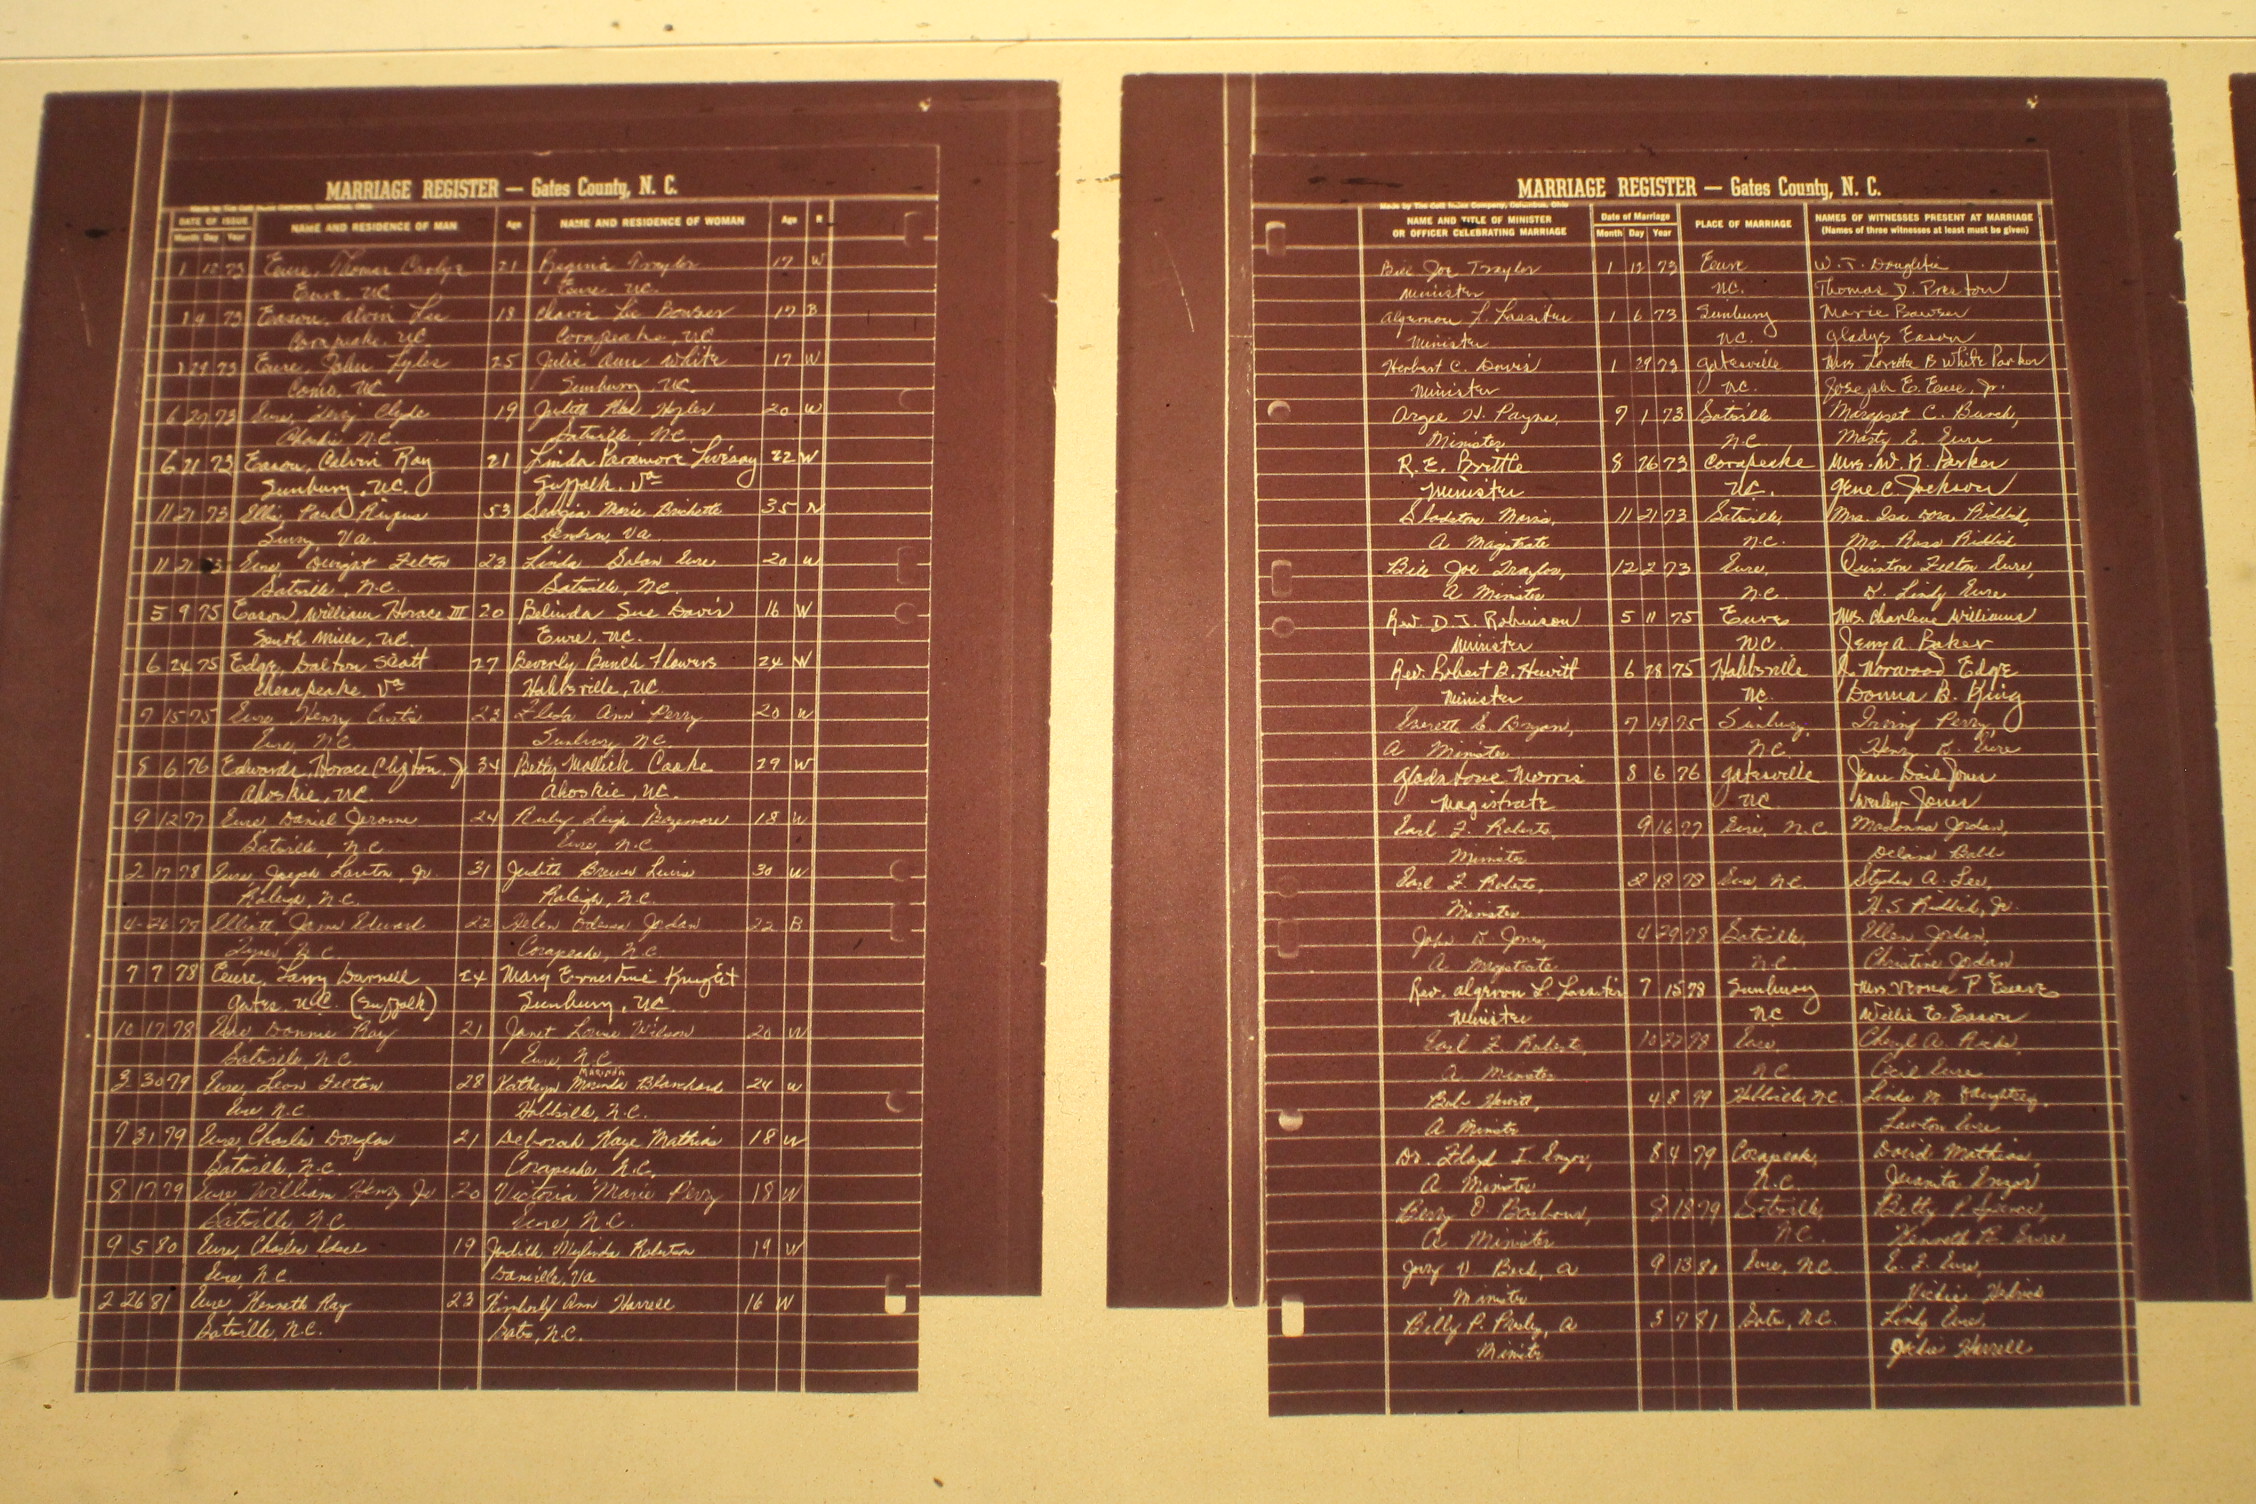 MARRIAGE REGISTER — Gates County, N. C.
DATE OF ISSUE
Month Day Year
NAME AND RESIDENCE OF MAN
Age
NAME AND RESIDENCE OF WOMAN
Age
R
1 12 73 Eure, Thomas 21 Regina Traylor 17 W
Eure, NC Eure, NC.
1 4 73 Eason, Alvin Lee 18 Lee Bowser 17 B
Corapeake, NC Corapeake, NC
1 29 73 Eure, John Tyler 25 Julie Ann White 17 W
Como, NC Sunbury, NC
6 29 73 Eure, Clyde 19 Judith 20 W
N.C. Gatesville, N.C.
6 21 73 Eason, Calvin Ray 21 Linda Paramore Livesay 22 W
Sunbury, NC. Suffolk, Va
11 21 73 Ellis, Paul 53 Georgia Marie 35
Surry, Va. Dendron, Va
11 21 Eure, Dwight Felton 23 Linda Eure 20 W
Gatesville, N.C. Gatesville, NC
5 9 75 Eason, William Horace III 20 Belinda Sue Davis 16 W
South Mills, NC Eure, NC.
6 24 75 Edge, Dalton Scott 27 Beverly Bunch Flowers 24 W
Chesapeake, Va Hobbsville, NC
7 15 75 Eure, Henry Curtis 23 Ann Perry 20 W
Eure, N.C. Sunbury, NC.
8 6 76 Edwards, Horace Clifton, Jr 34 Betty Mallick Cooke 29 W
Ahoskie, NC. Ahoskie, NC.
9 12 77 Eure Daniel Jerome 24 Ruby Bazemore 18 W
Gatesville, N.C Eure, N.C
2 17 78 Eure, Joseph Lawton, Jr. 31 Judith Brewer Lewis 30 W
Raleigh, N.C. Raleigh, N.C.
4-26 78 Elliott, James Edward 22 Helen Odessa Jordan 22 B
N.C Corapeake, N.C.
7 7 78 Eure, Larry Darnell 24 Mary Ernestine Knight
Gates, NC. (Suffolk) Sunbury, NC
10 17 78 Eure Donnie Ray 21 Janet Louise Wilson 20 W
Gatesville, N.C Eure, N.C
3 30 79 Eure, Leon Felton 28 Kathryn Blanchard 24 W
Eure N.C. Hobbsville, N.C.
7 31 79 Eure, Charles Douglas 21 Deborah Kaye Mathias 18 W
Gatesville, N.C. Corapeake, N.C.
8 17 79 Eure, William Henry Jr 20 Victoria Marie Perry 18 W
Gatesville, N.C Eure, N.C.
9 5 80 Eure, Charles Edsel 19 Judith Robertson 19 W
Eure, N.C. Danville, Va
2 26 81 Eure, Kenneth Ray 23 Kimberly Ann Harrell 16 W
Gatesville, N.C. Gates, N.C.
MARRIAGE REGISTER — Gates County, N. C.
Made by The Cott Index Company, Columbus, Ohio
NAME AND TITLE OF MINISTER
OR OFFICER CELEBRATING MARRIAGE
Date of Marriage
Month Day Year
PLACE OF MARRIAGE
NAMES OF WITNESSES PRESENT AT MARRIAGE
(Names of three witnesses at least must be given)
Bill Joe Traylor 1 12 73 Eure W. T. Doughtie
Minister NC. Thomas J. Preston
Algernon L. Lassiter 1 6 73 Sunbury Marie Bowser
Minister NC. Gladys Eason
Herbert C. Davis 1 29 73 Gatesville Mrs. Loretta B White Parker
Minister NC. Joseph E. Eure, Jr.
Argee H. Payne, 7 1 73 Gatesville Margaret C. Bunch,
Minister N.C Marty E. Eure
R. E. Brittle 8 26 73 Corapeake Mrs. W. K. Parker
Minister NC. Gene C. Jackson
Gladstone Morris, 11 21 73 Gatesville, Mrs. Isa Dora Riddick,
A Magistrate N.C. Mr. Ross Riddick
Bill Joe Traylor, 12 2 73 Eure, Quinton Felton Eure,
A Minister N.C. Lindy Eure
Rev. D. J. Robinson 5 11 75 Eure Mrs. Charlene Williams
Minister N.C. Jerry A. Baker
Rev. Robert B. Hewitt 6 28 75 Hobbsville J. Norwood Edge
Minister NC. Donna B. King
Everett E. Bryan, 7 19 75 Sunbury, Irving Perry,
A Minister N.C. Henry D. Eure
Gladstone Morris 8 6 76 Gatesville Jean Jones
Magistrate NC Wesley Jones
Earl F. Roberts, 9 16 77 Eure, N.C. Madonna Jordan,
Minister Babb
Earl F. Roberts, 2 18 78 Eure, N.C. Stephen A. Lee,
Minister H. S. Riddick, Jr.
John D. Jones, 4 29 78 Gatesville, Ellen Jordan,
A Magistrate N.C. Christine Jordan
Rev. Algernon L. Lassiter 7 15 78 Sunbury Mrs. Verna P. Eure
Minister NC Willie E. Eason
Earl F. Roberts, 10 22 78 Eure, Cheryl A.
A Minister N.C. Cecil Eure
Bob Hewitt, 4 8 79 Hobbsville, N.C. Linda M. Daughtrey,
A Minister Lawton Eure
Dr. Floyd I. Enzor, 8 4 79 Corapeake, David Mathias,
A Minister N.C. Juanita Enzor
Barbour, 8 18 79 Gatesville, Betty P. Spence,
A Minister N.C. Kenneth R. Eure
Jerry V. Beck, A 9 13 80 Eure, N.C E. F. Eure,
Minister Vickie
Billy P. A 3 7 81 Gates, N.C. Lindy Eure,
Minister Jackie Harrell